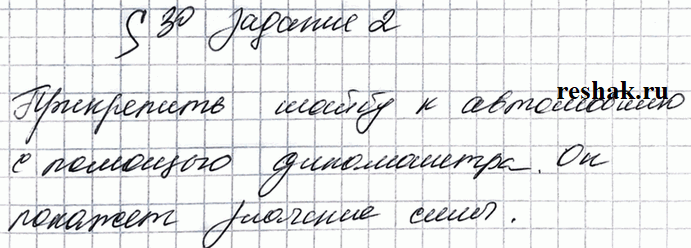 § 30 Задание 2
Прикрепить шайбу к автомобилю
reshak.ru
с помощью динамометра. Он
покажет значение силы.